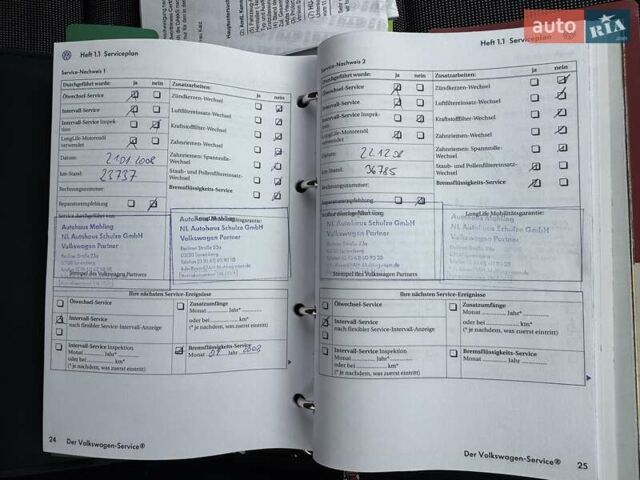 auto RIA
Heft 1.1 Serviceplan
Service-Nachweis 1
Durchgeführt wurde: ja nein
Zusatzarbeiten: ja nein
Ölwechsel-Service
Zündkerzen-Wechsel
Intervall-Service
Luftfiltereinsatz-Wechsel
Intervall-Service Inspek-
tion
Kraftstofffilter-Wechsel
LongLife-Motorenöl
verwendet
Zahnriemen-Wechsel
Datum: 21.01.2008
Zahnriemen: Spannrolle-
Wechsel
km-Stand: 23737
Staub- und Pollenfiltereinsatz-
Wechsel
Rechnungsnummer:
Bremsflüssigkeits-Service
Reparaturempfehlung
Service durchgeführt von:
LongLife Mobilitätsgarantie:
Autohaus Mahling
NL Autohaus Schulze GmbH
Volkswagen Partner
Berliner Straße 23a
03130 Spremberg
Autohaus Mahling
NL Autohaus Schulze GmbH
Volkswagen Partner
Berliner Straße 23a
03130 Spremberg
Stempel des Volkswagen Partners
Ihre nächsten Service-Ereignisse
Ölwechsel-Service
Zusatzumfänge
Monat Jahr*
Intervall-Service
nach flexibler Service-Intervall-Anzeige
oder bei km*
(* je nachdem, was zuerst eintritt)
Intervall-Service Inspektion
Monat Jahr*
oder bei km*
(* je nachdem, was zuerst eintritt)
Bremsflüssigkeits-Service
Monat 09 Jahr 2008
24 Der Volkswagen-Service®
Heft 1.1 Serviceplan
Service-Nachweis 2
Durchgeführt wurde: ja nein
Zusatzarbeiten: ja nein
Ölwechsel-Service
Zündkerzen-Wechsel
Intervall-Service
Luftfiltereinsatz-Wechsel
Intervall-Service Inspek-
tion
Kraftstofffilter-Wechsel
LongLife-Motorenöl
verwendet
Zahnriemen-Wechsel
Datum: 22.12.08
Zahnriemen: Spannrolle-
Wechsel
km-Stand: 36785
Staub- und Pollenfiltereinsatz-
Wechsel
Rechnungsnummer:
Bremsflüssigkeits-Service
Reparaturempfehlung
LongLife Mobilitätsgarantie:
Autohaus Mahling
NL Autohaus Schulze GmbH
Volkswagen Partner
Autohaus Mahling
NL Autohaus Schulze GmbH
Volkswagen Partner
Stempel des Volkswagen Partners
Ihre nächsten Service-Ereignisse
Ölwechsel-Service
Zusatzumfänge
Monat Jahr*
Intervall-Service
nach flexibler Service-Intervall-Anzeige
oder bei km*
(* je nachdem, was zuerst eintritt)
Intervall-Service Inspektion
Monat Jahr*
oder bei km*
(* je nachdem, was zuerst eintritt)
Bremsflüssigkeits-Service
Monat Jahr
Der Volkswagen-Service® 25